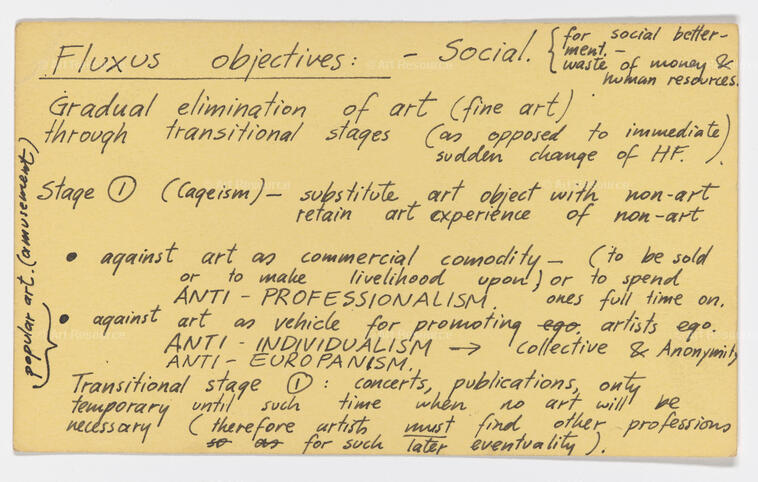 Fluxus objectives: - Social. { for social better-
ment. -
waste of money &
human resources.
Gradual elimination of art (fine art)
through transitional stages (as opposed to immediate
sudden change of HF. ).
Stage ① (Cageism) - substitute art object with non-art
retain art experience of non-art
• against art as commercial comodity - (to be sold
or to make livelihood upon) or to spend
ANTI - PROFESSIONALISM. ones full time on.
• against art as vehicle for promoting ego. artists ego.
ANTI - INDIVIDUALISM → collective & Anonymity
ANTI - EUROPANISM.
popular art. (amusement)
Transitional stage ①: concerts, publications, only
temporary until such time when no art will be
necessary (therefore artists must find other professions
so as for such later eventuality).
Art Resource